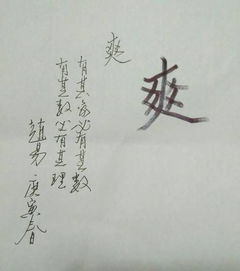 爽
爽
有其象必有其数
有其数必有其理
趙易 庚寅春